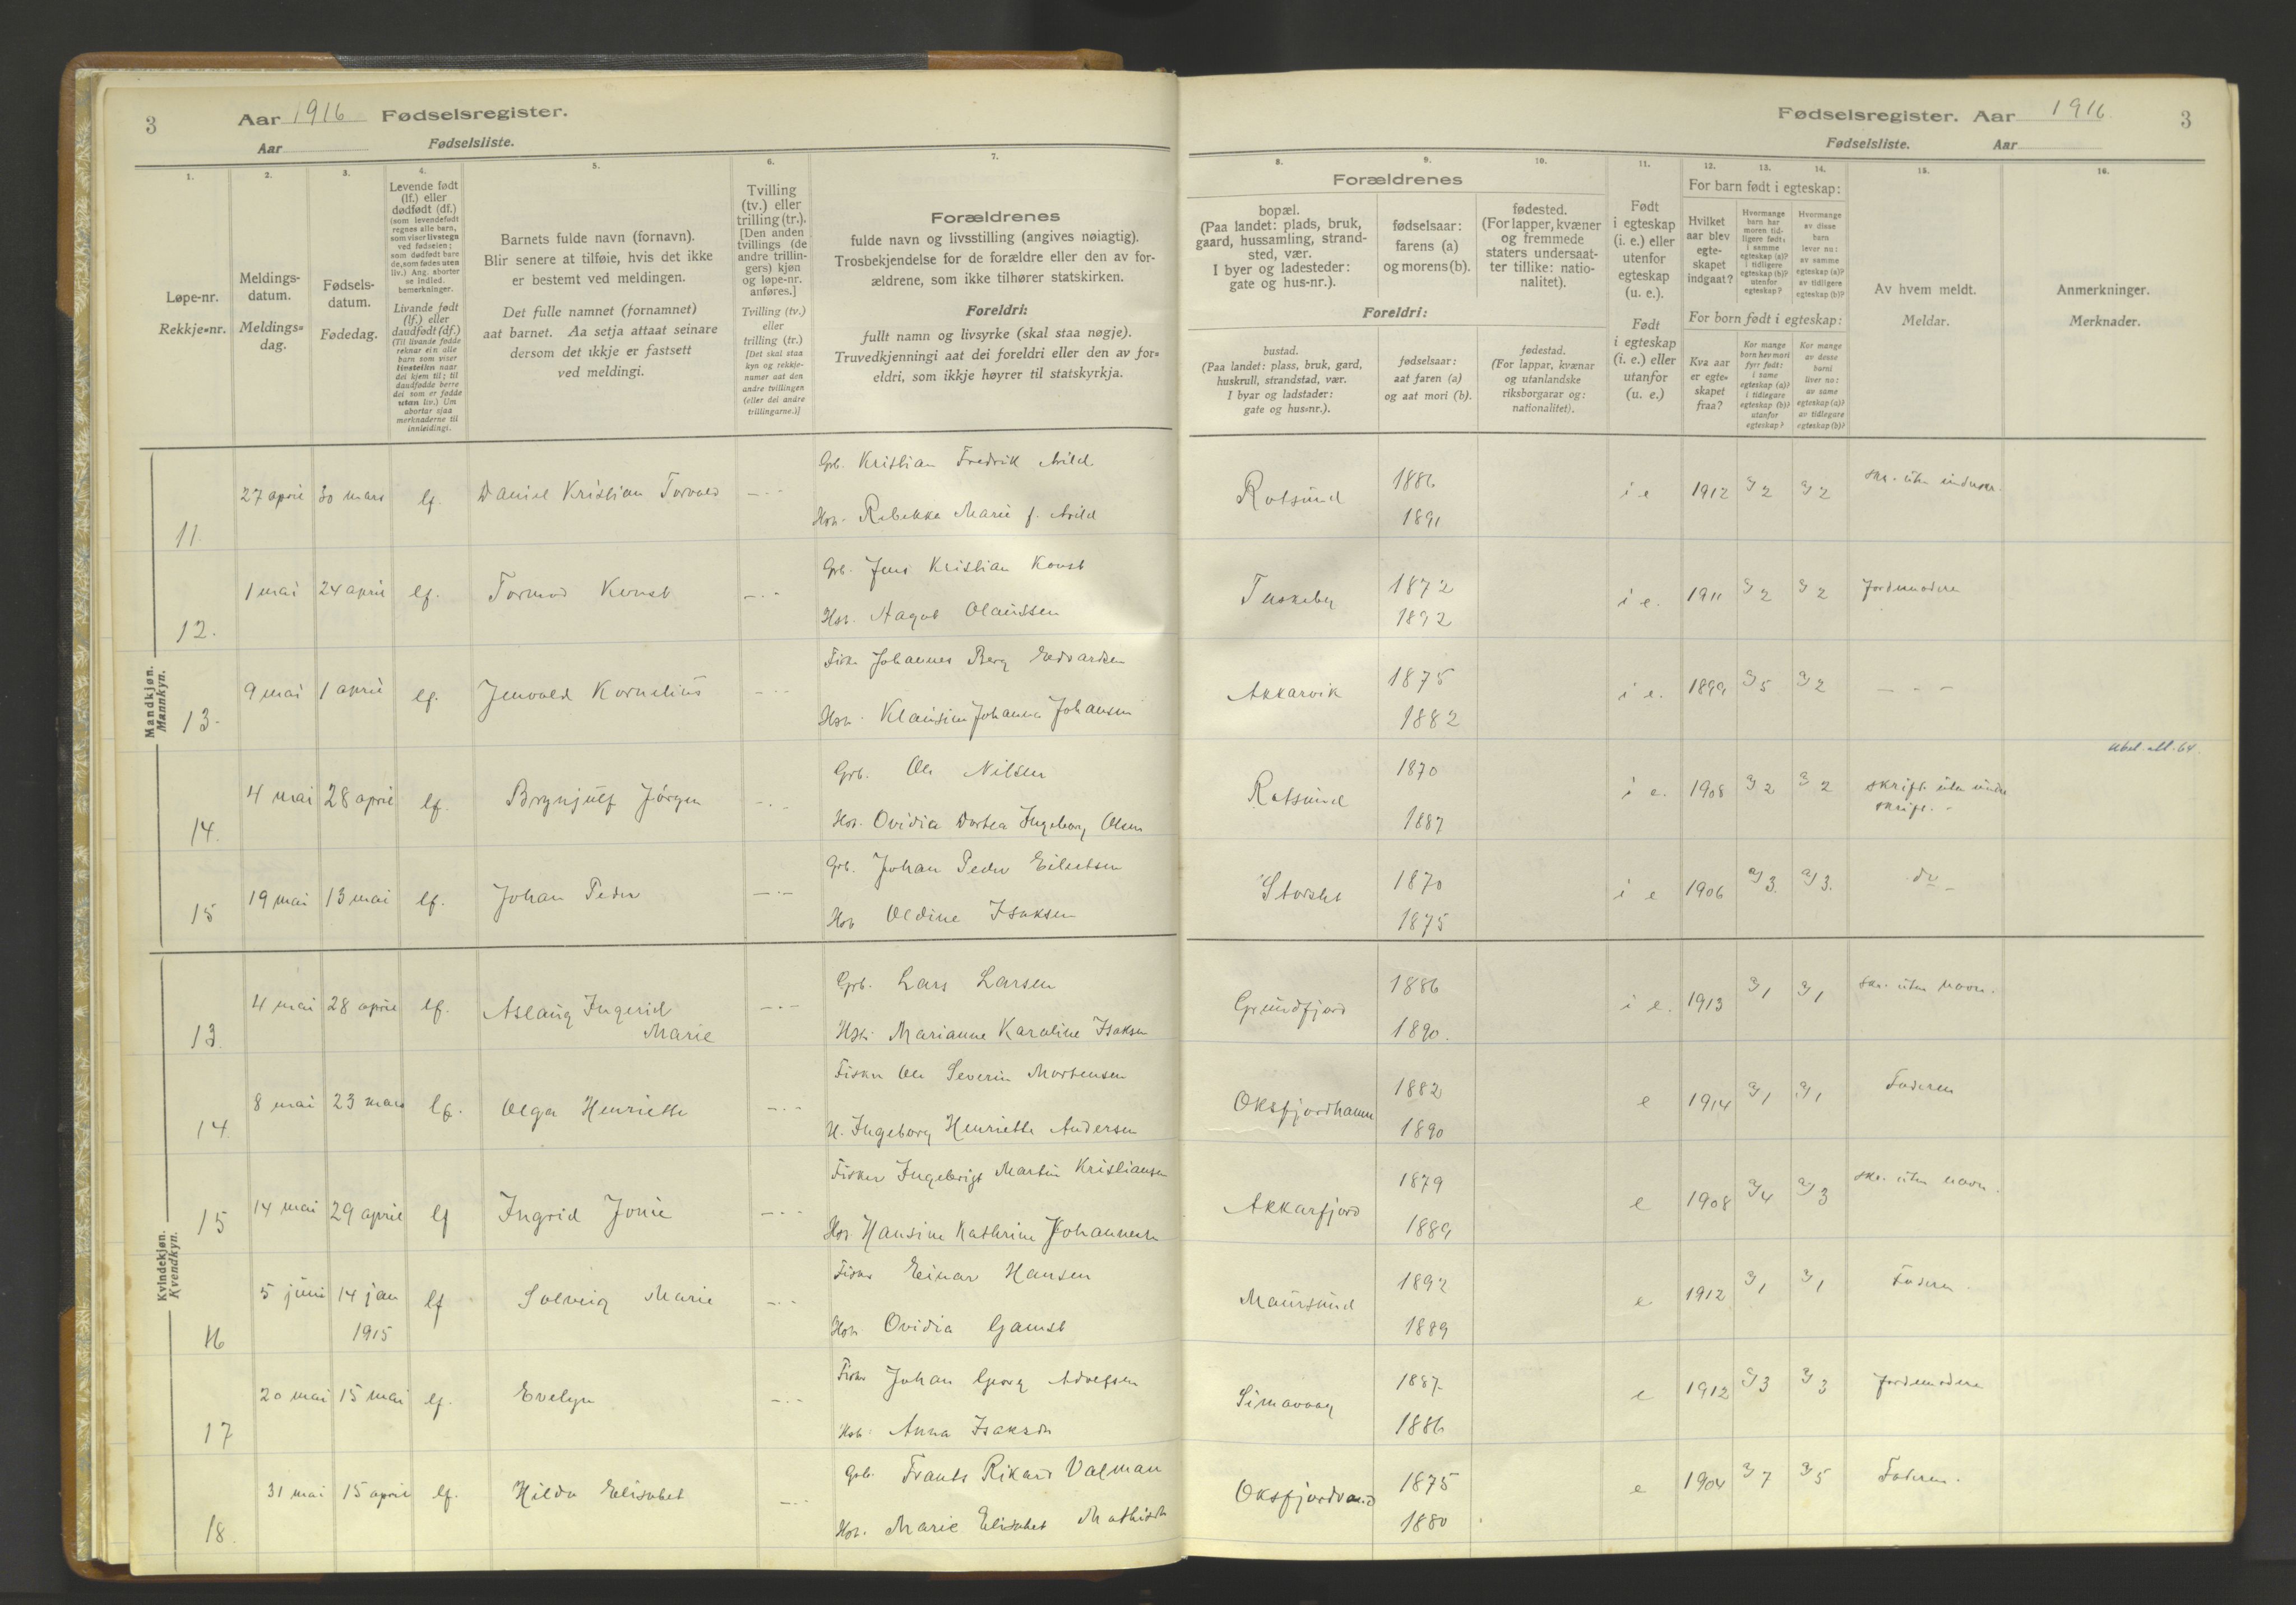 3
Aar 1916 Fødselsregister.
Aar
Fødselsliste.
1.
2.
3.
4.
5.
6.
7.
Løpe-nr.
Rekkje=nr.
Meldings-
datum.
Meldings=
dag.
Fødsels-
datum.
Fødedag.
Levende født
(lf.) eller
dødfødt (df.)
(som levendefødt
regnes alle barn,
som viser livstegn
ved fødselen;
som dødfødt bare
de, som fødes uten
liv.) Ang. aborter
se indled.
bemerkninger.
Livande født
(lf.) eller
daudfødt (df.)
(Til livande fødde
reknar ein alle
barn som viser
livsteikn naar
dei kjem til; til
daudfødde berre
dei som er fødde
utan liv.) Um
abortar sjaa
merknaderne til
innleidingi.
Barnets fulde navn (fornavn).
Blir senere at tilføie, hvis det ikke
er bestemt ved meldingen.
Det fulle namnet (fornamnet)
aat barnet. Aa setja attaat seinare
dersom det ikkje er fastsett
ved meldingi.
Tvilling
(tv.) eller
trilling (tr.).
[Den anden
tvillings (de
andre trillin-
gers) kjøn
og løpe-nr.
anføres.]
Tvilling (tv.)
eller
trilling (tr.)
[Det skal staa
kyn og rekkje-
numer aat den
andre tvillingen
(eller dei andre
trillingarne.)]
Forældrenes
fulde navn og livsstilling (angives nøiagtig).
Trosbekjendelse for de forældre eller den av for-
ældrene, som ikke tilhører statskirken.
Foreldri:
fullt namn og livsyrke (skal staa nøgje).
Truvedkjenningi aat dei foreldri eller den av for=
eldri, som ikkje høyrer til statskyrkja.
Mandkjøn.
Mannkyn.
11. 27 april 30 mars lf. Daniel Kristian Torvald — · —
Grb. Kristian Fredrik Arild
Hst. Rebekka Marie f. Arild
12. 1 mai 24 april lf. Tormod Konst — · —
Grb. Jens Kristian Konst
Hst. Aagot Olaussen
13. 9 mai 1 april lf. Jenvald Kornelius — · —
Fisker Johannes Berg Edvardsen
Hst. Klausine Johanna Johansen
14. 4 mai 28 april lf. Brynjulf Jørgen — · —
Grb. Ole Nilsen
Hst. Ovidia Dortea Ingeborg Olsen
15 19 mai 13 mai lf. Johan Peder — · —
Grb. Johan Peder Eilertsen
Hst Oldine Isaksen
Kvindekjøn.
Kvendkyn.
13. 4 mai 28 april lf. Aslaug Ingerid Marie — · —
Grb. Lars Larsen
Hst. Marianne Karoline Isaksen
14. 8 mai 23 mars lf. Olga Henriette — · —
Fisker Ole Severin Mortensen
H. Ingeborg Henriette Andersen
15 14 mai 29 april lf Ingrid Jonie — · —
Fisker Ingebrigt Martin Kristiansen
Hst. Hansine Kathrine Johannesen
16 5 juni 14 jan 1915 lf Solveig Marie — · —
Fisker Einar Hansen
Hst. Ovidia Gamst
17 20 mai 15 mai lf. Evelyn — · —
Fisker Johan Georg Adolfsen
Hst. Anna Isaksen
18. 31 mai 15 april lf. Hilda Elisabet — · —
Grb. Frants Rikard Valman
Hst. Marie Elisabet Mathisen
Fødselsregister. Aar 1916.
3
Fødselsliste.
Aar
8.
9.
10.
11.
12.
13.
14.
15.
16.
Forældrenes
bopæl.
(Paa landet: plads, bruk,
gaard, hussamling, strand-
sted, vær.
I byer og ladesteder:
gate og hus-nr.).
fødselsaar:
farens (a)
og morens (b).
fødested.
(For lapper, kvæner
og fremmede
staters undersaat-
ter tillike: natio-
nalitet).
Foreldri:
bustad.
(Paa landet: plass, bruk, gard,
huskrull, strandstad, vær.
I byar og ladstader:
gate og hus=nr.).
fødselsaar:
aat faren (a)
og aat mori (b).
fødestad.
(For lappar, kvænar
og utanlandske
riksborgarar og:
nationalitet).
Født
i egteskap
(i. e.) eller
utenfor
egteskap
(u. e.).
Født
i egteskap
(i. e.) eller
utanfor
(u. e.)
For barn født i egteskap:
Hvilket
aar blev
egte-
skapet
indgaat?
Hvormange
barn har
moren tid-
ligere født:
i samme
egteskap (a)?
i tidligere
egteskap (b)?
utenfor
egteskap?
Hvormange
av disse
barn
lever nu:
av samme
egteskap (a)?
av tidligere
egteskap (b)?
For born født i egteskap:
Kva aar
er egte=
skapet
fraa?
Kor mange
born hev mori
fyrr født:
i same
egteskap (a)?
i tidlegare
egteskap (b)?
utanfor
egteskap?
Kor mange
av desse
borni
liver no:
av same
egteskap (a)?
av tidlegare
egteskap (b)?
Av hvem meldt.
Meldar.
Anmerkninger.
Merknader.
Rotsund 1886 1891 i e 1912 a) 2 a) 2 skr. uten
Tuskeby 1872 1892 i e. 1911 a) 2 a) 2 Jordmoderen
Akkarvik 1875 1882 i e. 1899 a) 5 a) 2 — · —
Rotsund 1870 1887 i e. 1908 a) 2 a) 2 skrift. uten underskrift. -
64.
Storslet 1870 1875 i e 1906 a) 3. a) 3. do
Grundfjord 1886 1890. i e. 1913 a) 1 a) 1 skr. uten navn.
Oksfjordhamn 1882 1890 e 1914 a) 1 a) 1 Faderen
Akkarfjord 1879 1889 e 1908 a) 4 a) 3 skr. uten navn.
Maursund 1892 1889 e 1912 a) 1 a) 1 Faderen.
Simavaag 1887. 1886 e 1912 a) 3 a) 3 Jordmoderen
Oksfjordvand 1875 1880 e 1904 a) 7 a) 5 Faderen.